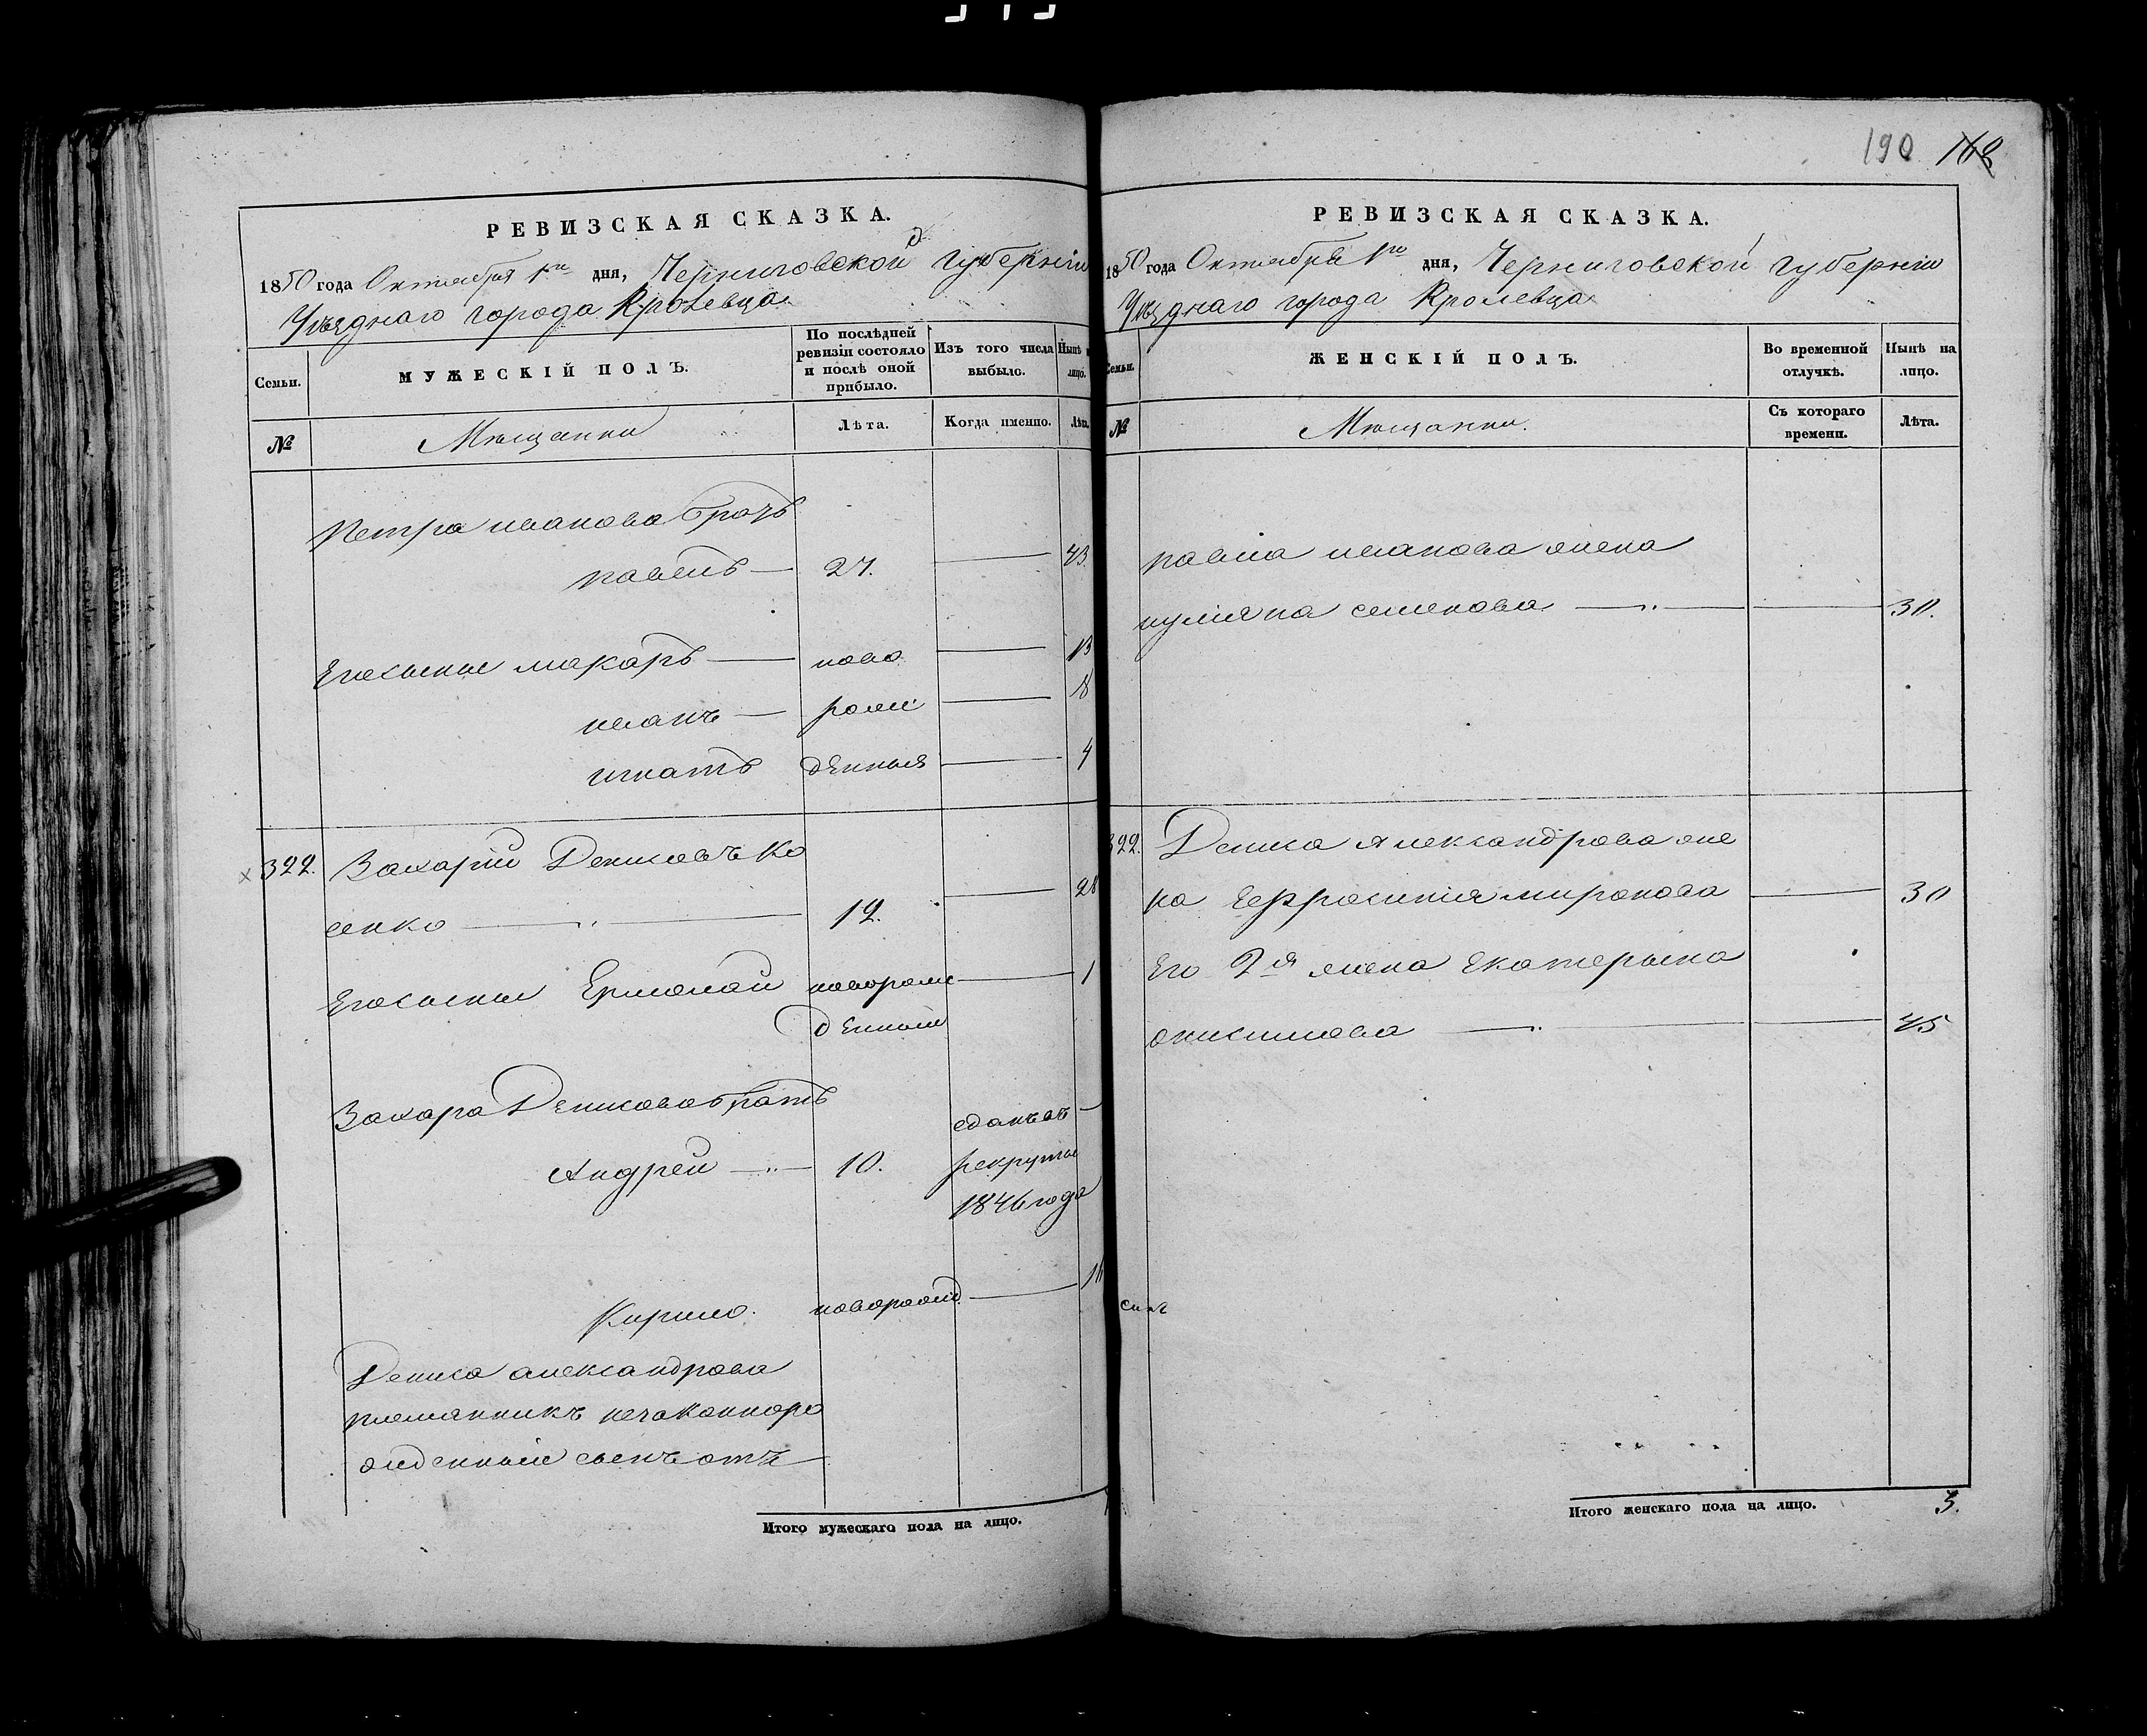 190 168
РЕВИЗСКАЯ СКАЗКА.
1850 года Октября 1го дня, Черниговской Губерніи
Уѣзднаго города Кролевца
Семьи.
МУЖЕСКІЙ ПОЛЪ.
По послѣдней ревизіи состояло и послѣ оной прибыло.
Изъ того числа выбыло.
Нынѣ на лицо.
№
Мѣщанки
Лѣта.
Когда именно.
Лѣта.
Петра иванова братъ
павелъ — 27. — 43.
Егосыны макаръ — ново — 13
иванъ — рож — 8
игнатъ денныя — 4
322. Захарій Денисовъ Ко
сенко — 12. — 28
Егосыны Ермолай новорож — 1
денный
Захара Денисова братъ
Андрей — 10.
сданъ въ —
рекруты
1846 года
Кирило. новорожд. — 16
Дениса александрова
племянникъ незаконноро
жденный сынъ отъ
Итого мужескаго пола на лицо.
РЕВИЗСКАЯ СКАЗКА.
1850 года Октября 1го дня, Черниговской Губерніи
Уѣзднаго города Кролевца
Семьи.
ЖЕНСКІЙ ПОЛЪ.
Во временной отлучкѣ.
Нынѣ на лицо.
№
Мѣщанки.
Съ котораго времени.
Лѣта.
павла иванова жена
улияна семенова — 30.
322. Дениса Александрова же
на Ефросинія миронова — 30
Его 2я жена Екатерына
онисимова — 45
Итого женскаго пола на лицо. 3.